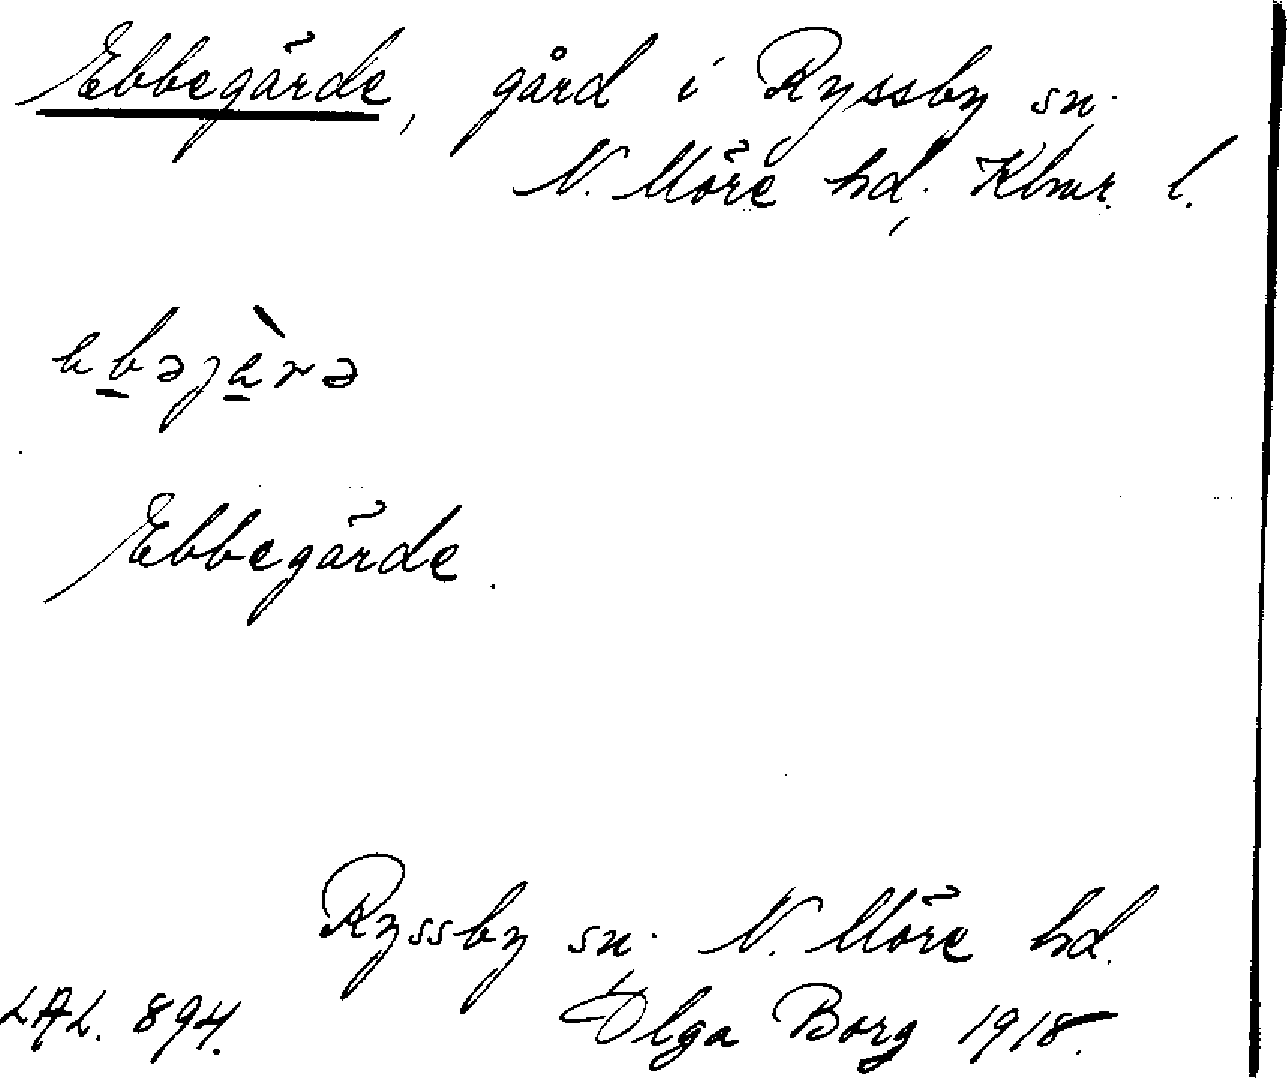 Ebbegärde, gård i Ryssby sn.
N. Möre hd, Klmr. l.
Ebbegärde.
Ryssby sn. N. Möre hd.
LAL. 894. Olga Borg 1918.